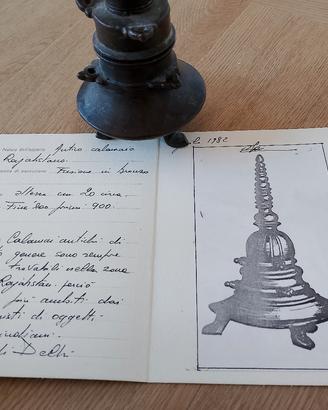 Natura dell'oggetto Antico calamaio
Rajahstano.
di esecuzione Fusione in bronzo
Altezza cm 20 circa
Fine 800 primi 900.
1982
Calamai antichi di
genere sono sempre
trovabili nella zona
Rajahstan perciò
più ambiti dai
di oggetti
indiani.
di Delhi